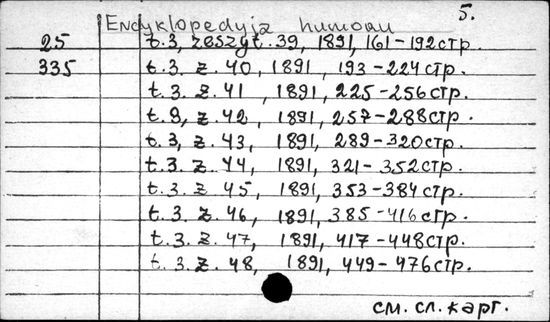 5.
Encyklopedyja humoru
25 t.3, zeszyt. 39, 1891, 161-192стр.
335 t.3. z. 40, 1891, 193-224стр.
t.3. z. 41, 1891, 225-256стр.
t.3, z. 42, 1891, 257-288стр.
t.3, z. 43, 1891, 289-320стр.
t.3. z. 44, 1891, 321-352стр.
t.3. z. 45, 1891, 353-384стр.
t.3. z. 46, 1891, 385-416стр.
t.3. z. 47, 1891, 417-448стр.
t.3. z. 48, 1891, 449-476стр.
см. сл. карт.